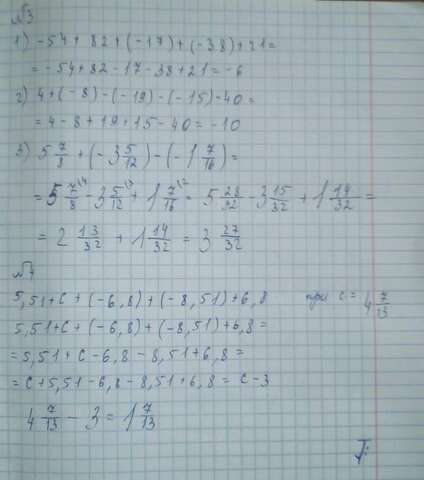 №3
1) -54 + 82 + (-17) + (-38) + 21 =
= -54 + 82 - 17 - 38 + 21 = -6
2) 4 + (-8) - (-19) - (-15) - 40 =
= 4 - 8 + 19 + 15 - 40 = -10
3) 5 7/8 + (-3 5/12) - (-1 7/16) =
= 5 7/8 - 3 5/12 + 1 7/16 = 5 28/32 - 3 15/32 + 1 14/32 =
= 2 13/32 + 1 14/32 = 3 27/32
5,51 + c + (-6,8) + (-8,51) + 6,8 при c = 4 7/13
5,51 + c + (-6,8) + (-8,51) + 6,8 =
= 5,51 + c - 6,8 - 8,51 + 6,8 =
= c + 5,51 - 6,8 - 8,51 + 6,8 = c - 3
4 7/13 - 3 = 1 7/13